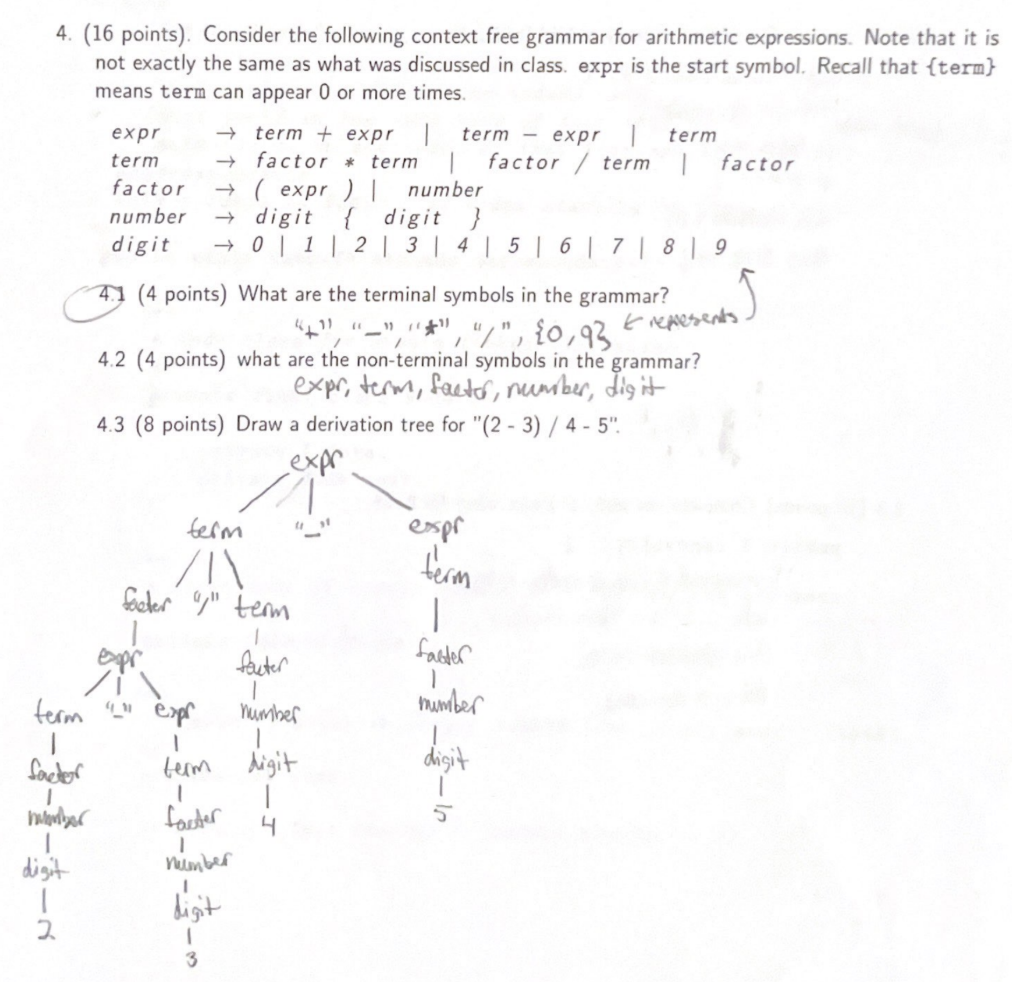 4. (16 points). Consider the following context free grammar for arithmetic expressions. Note that it is
not exactly the same as what was discussed in class. expr is the start symbol. Recall that {term}
means term can appear 0 or more times.
expr → term + expr | term − expr | term
term → factor * term | factor / term | factor
factor → ( expr ) | number
number → digit { digit }
digit → 0 | 1 | 2 | 3 | 4 | 5 | 6 | 7 | 8 | 9
4.1 (4 points) What are the terminal symbols in the grammar?
"+", "-" "*", "/", {0,9} ← represents
4.2 (4 points) what are the non-terminal symbols in the grammar?
expr, term, factor, number, digit
4.3 (8 points) Draw a derivation tree for "(2 - 3) / 4 - 5".
expr
term "-" expr
term
factor "/" term
expr factor factor
term "-" expr number number
factor term digit digit
number factor 4 5
digit number
2 digit
3